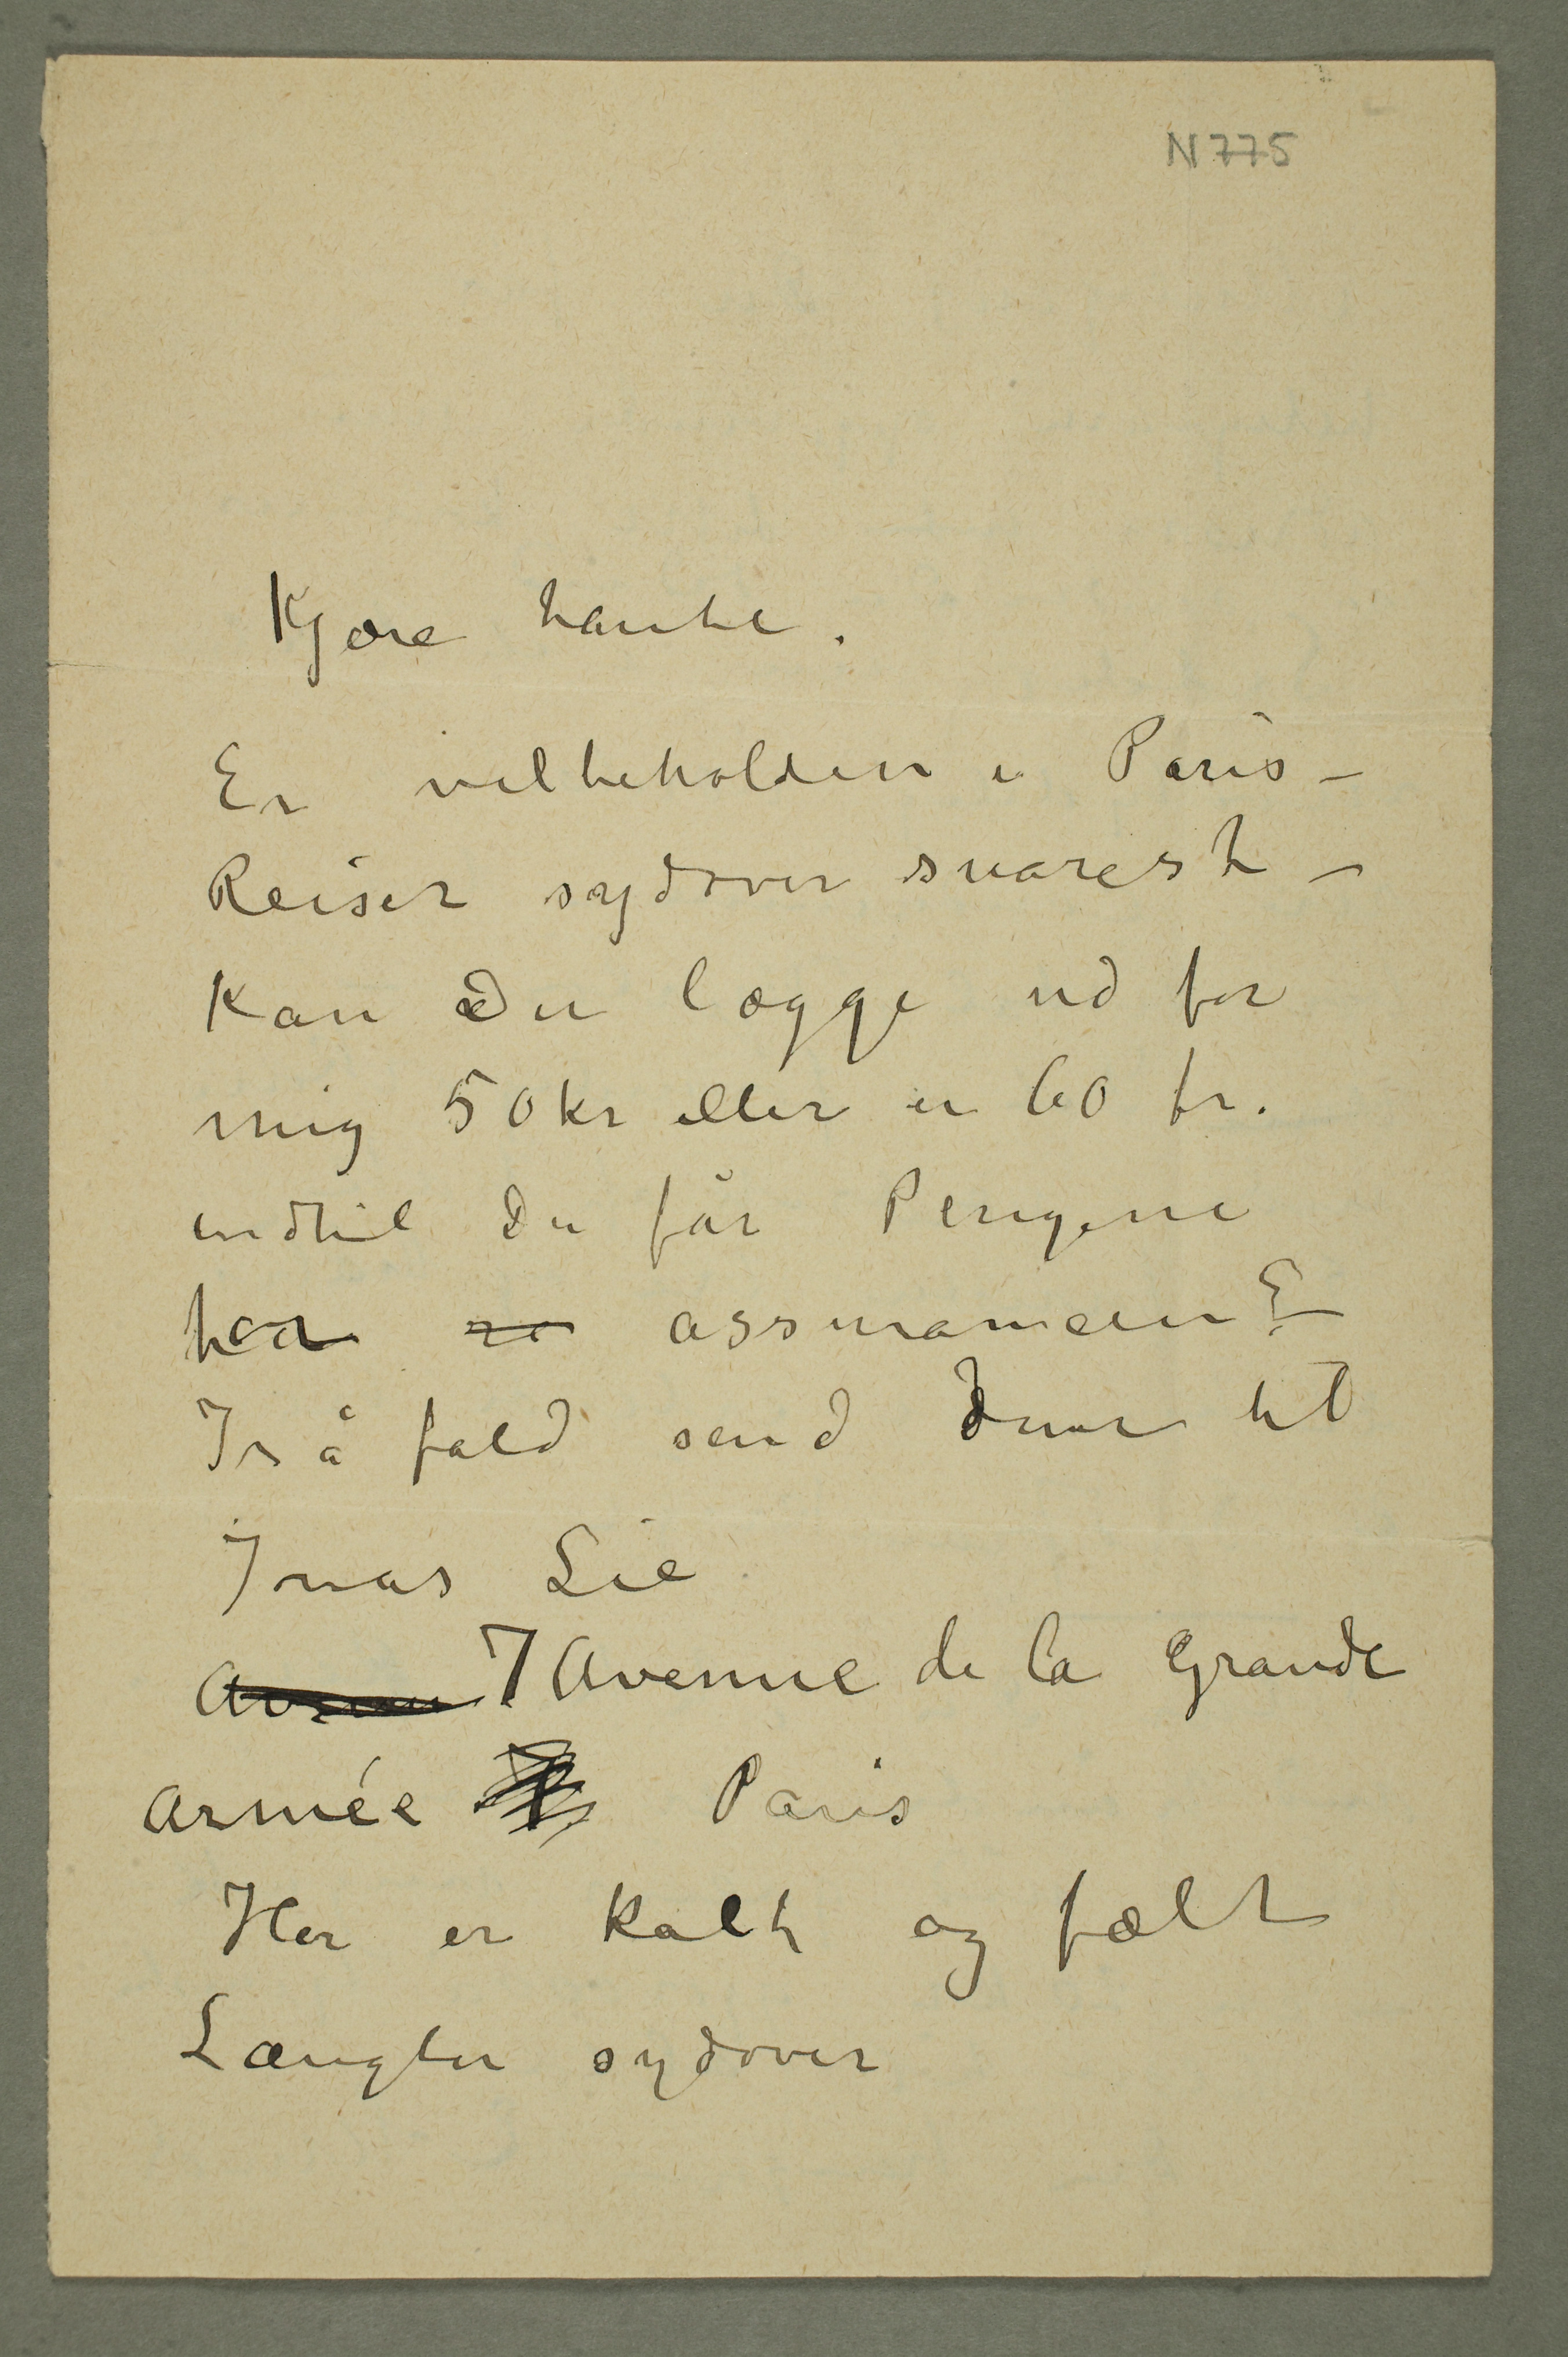 N 775
Kjære tante.
Er velbeholden i Paris –
Reiser sydover snarest –
Kan Du lægge ud for
mig 50 kr eller en 60 fr.
indtil Du får Pengene
assurancen? –
Iså fald send dem til
Jonas Lie
7 Avenue de la Grande
Armée Paris
Her er kalt og fælt
Længter sydover